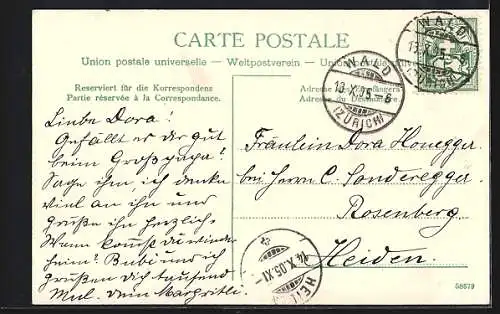 CARTE POSTALE
Union postale universelle. — Weltpostverein — Unione postale
Reserviert für die Korrespondenz
Partie réservée à la Correspondance.
Adresse
Adresse du Destinataire.
WALD
13.X.05.-6
(ZÜRICH)
WALD
13.X.05
Liebe Dora!
Gefällt es dir gut
beim Großpapa?
Sage ihm, ich denke
viel an ihn und
grüße ihn herzlich.
Wann kommst du wieder
heim? Bubi und ich
grüßen dich tausend
Mal. dein Margritli.
Fräulein Dora Honegger
bei Herrn C. Sonderegger.
Rosenberg
Heiden.
14.X.05.XI-
HEI
58679